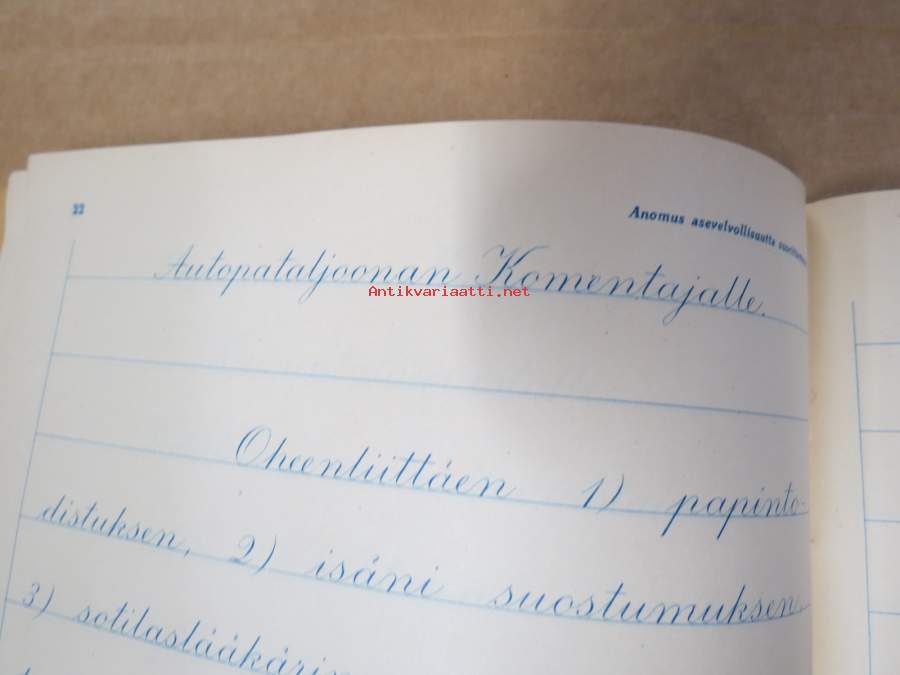 22
Anomus asevelvollisuutta
Autopataljoonan Komentajalle.
Antikvariaatti.net
Oheenliittäen 1) papinto-
distuksen, 2) isäni suostumuksen
3) sotilaslääkärin